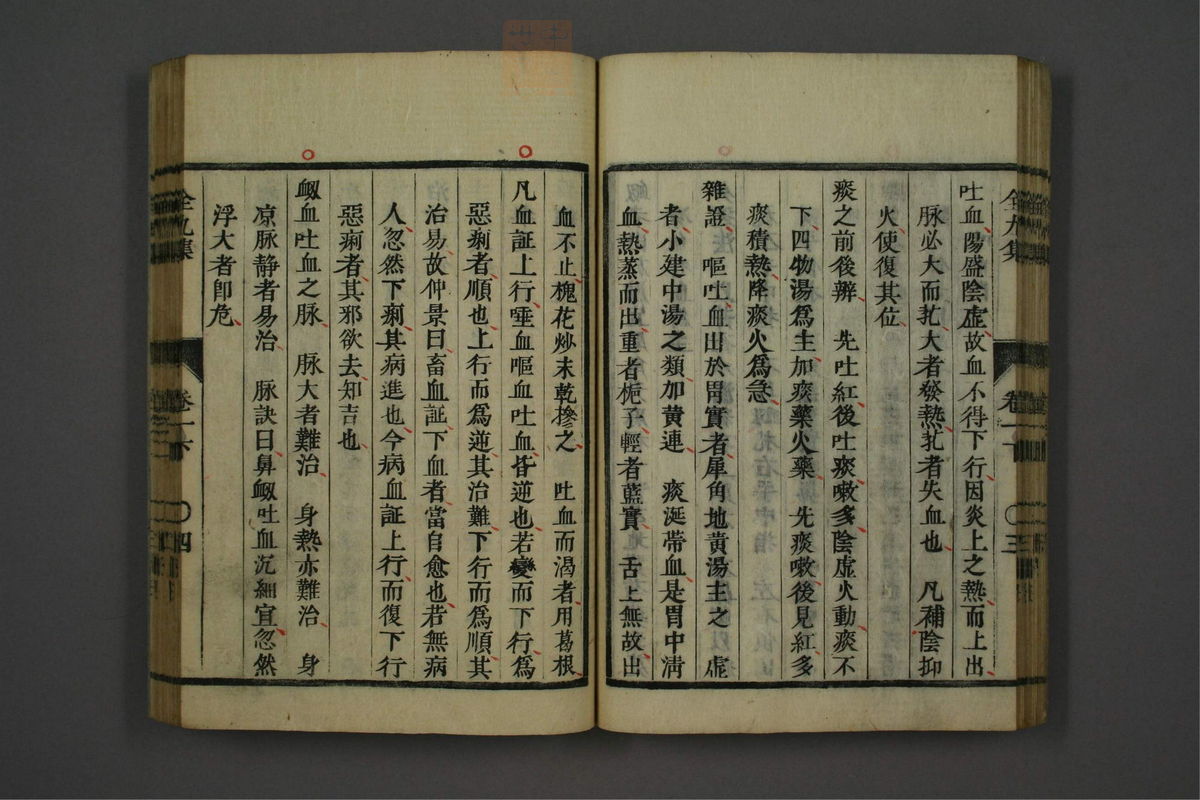 吐血陽盛陰虛故血不得下行因炎上之熱而上出
脉必大而芤大者發熱芤者失血也　凡補陰抑
火使復其位
痰之前後辨　先吐紅後吐痰嗽多陰虛火動痰不
下四物湯爲主加痰藥火藥　先痰嗽後見紅多
痰積熱降痰火爲急
雜證　嘔吐血出於胃實者犀角地黄湯主之　虚
者小建中湯之類加黄連　痰涎帯血是胃中淸
血熱蒸而出重者栀子輕者藍實　舌上無故出
血不止槐花炒末乾摻之　吐血而渴者用葛根
凡血証上行唾血嘔血吐血皆逆也若變而下行爲
惡痢者順也上行而爲逆其治難下行而爲順其
治易故仲景曰畜血証下血者當自愈也若無病
人忽然下痢其病進也今病血証上行而復下行
惡痢者其邪欲去知吉也
衂血吐血之脉　脉大者難治　身熱亦難治　身
凉脉静者易治　脉訣曰鼻衂吐血沉細宜忽然
浮大者即危
全九集
卷一下
三
全九集
卷一下
四